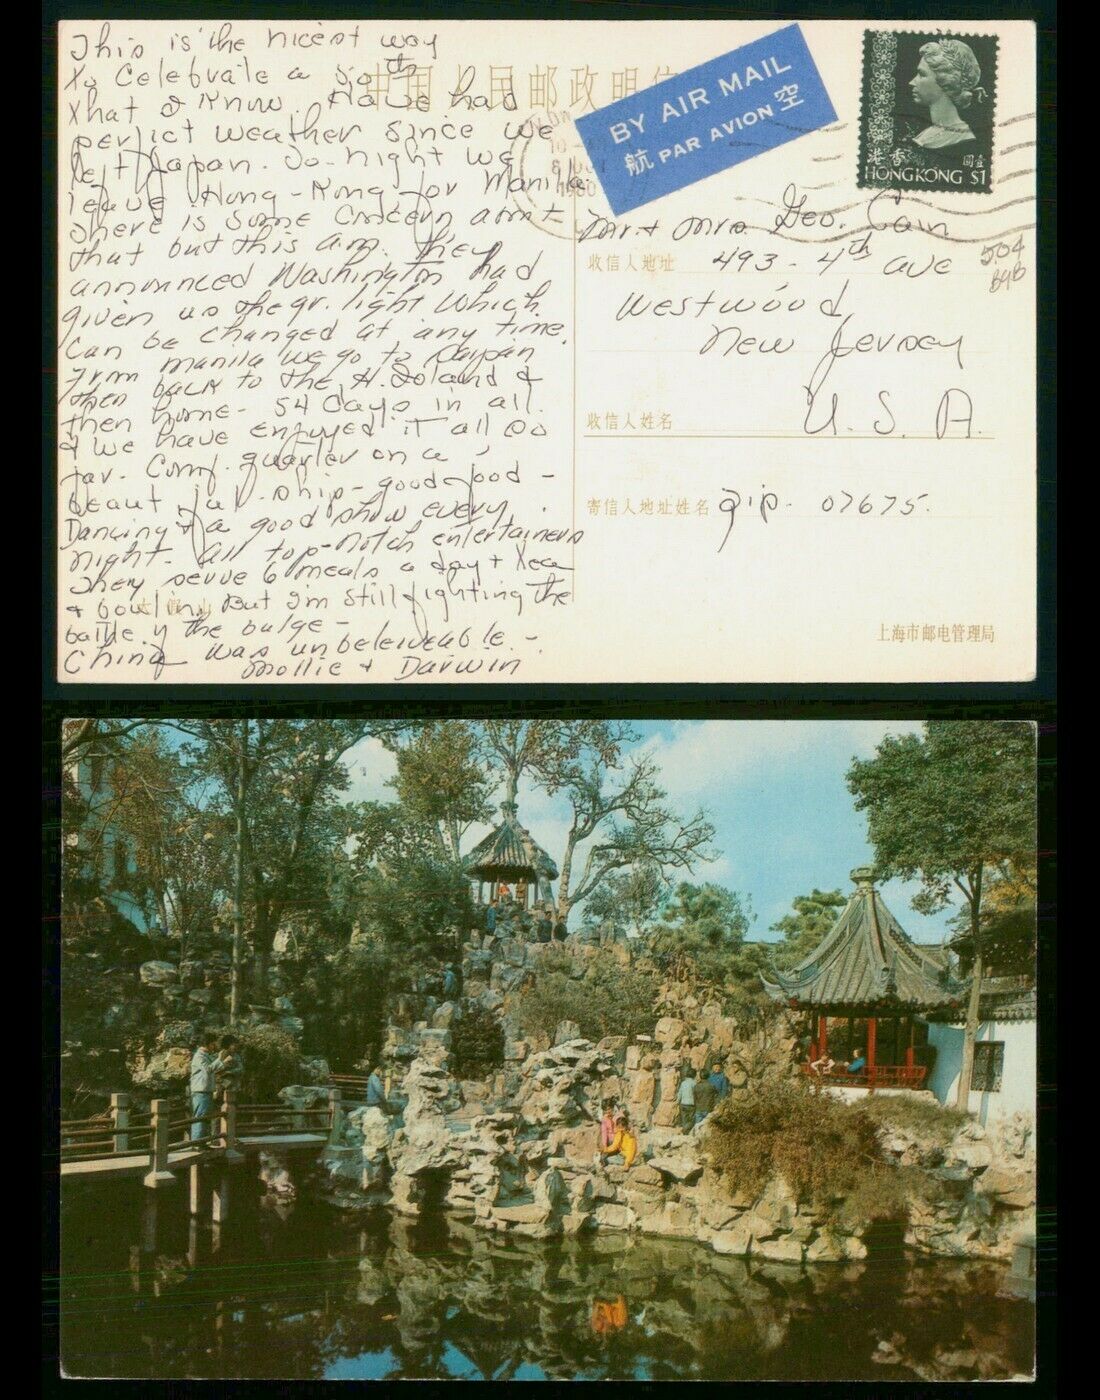 This is the nicest way
to celebrate a 50th
that I know. Have had
perfict weather since we
left Japan. To-night we
leave Hong-Kong for Manila
There is some concern about
that but this a.m. they
announced Washington had
given us the gr. light which
can be changed at any time.
From manila we go to Saipan
then back to the H. Island &
then home - 54 days in all.
& we have enjoyed it all so
far. Comf. quarter on a
beautiful ship - good food -
Dancing & a good show every
night. all top-notch entertainers
They serve 6 meals a day + tea
+ bouillon, But I'm still fighting the
battle of the bulge -
China was unbeleiveable -
Mollie + Darwin
中国人民邮政明信
BY AIR MAIL
PAR AVION
航空
港香
壹圓
HONG KONG $1
10 -
1980
Mr + Mrs Geo. Cain
收信人地址 493 - 4th ave
Westwood,
New Jersey
收信人姓名 U. S. A.
寄信人地址姓名 Zip. 07675.
上海市邮电管理局